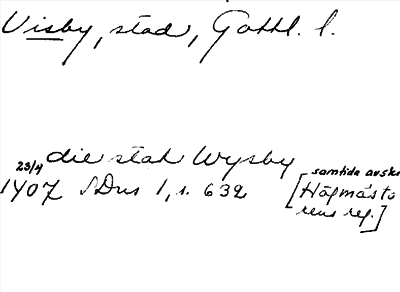 Visby, stad, Gottl. l.
die stat Wysby
23/4 samtida avskr
1407 SDns 1, s. 632 [Högmästa
rens reg.]